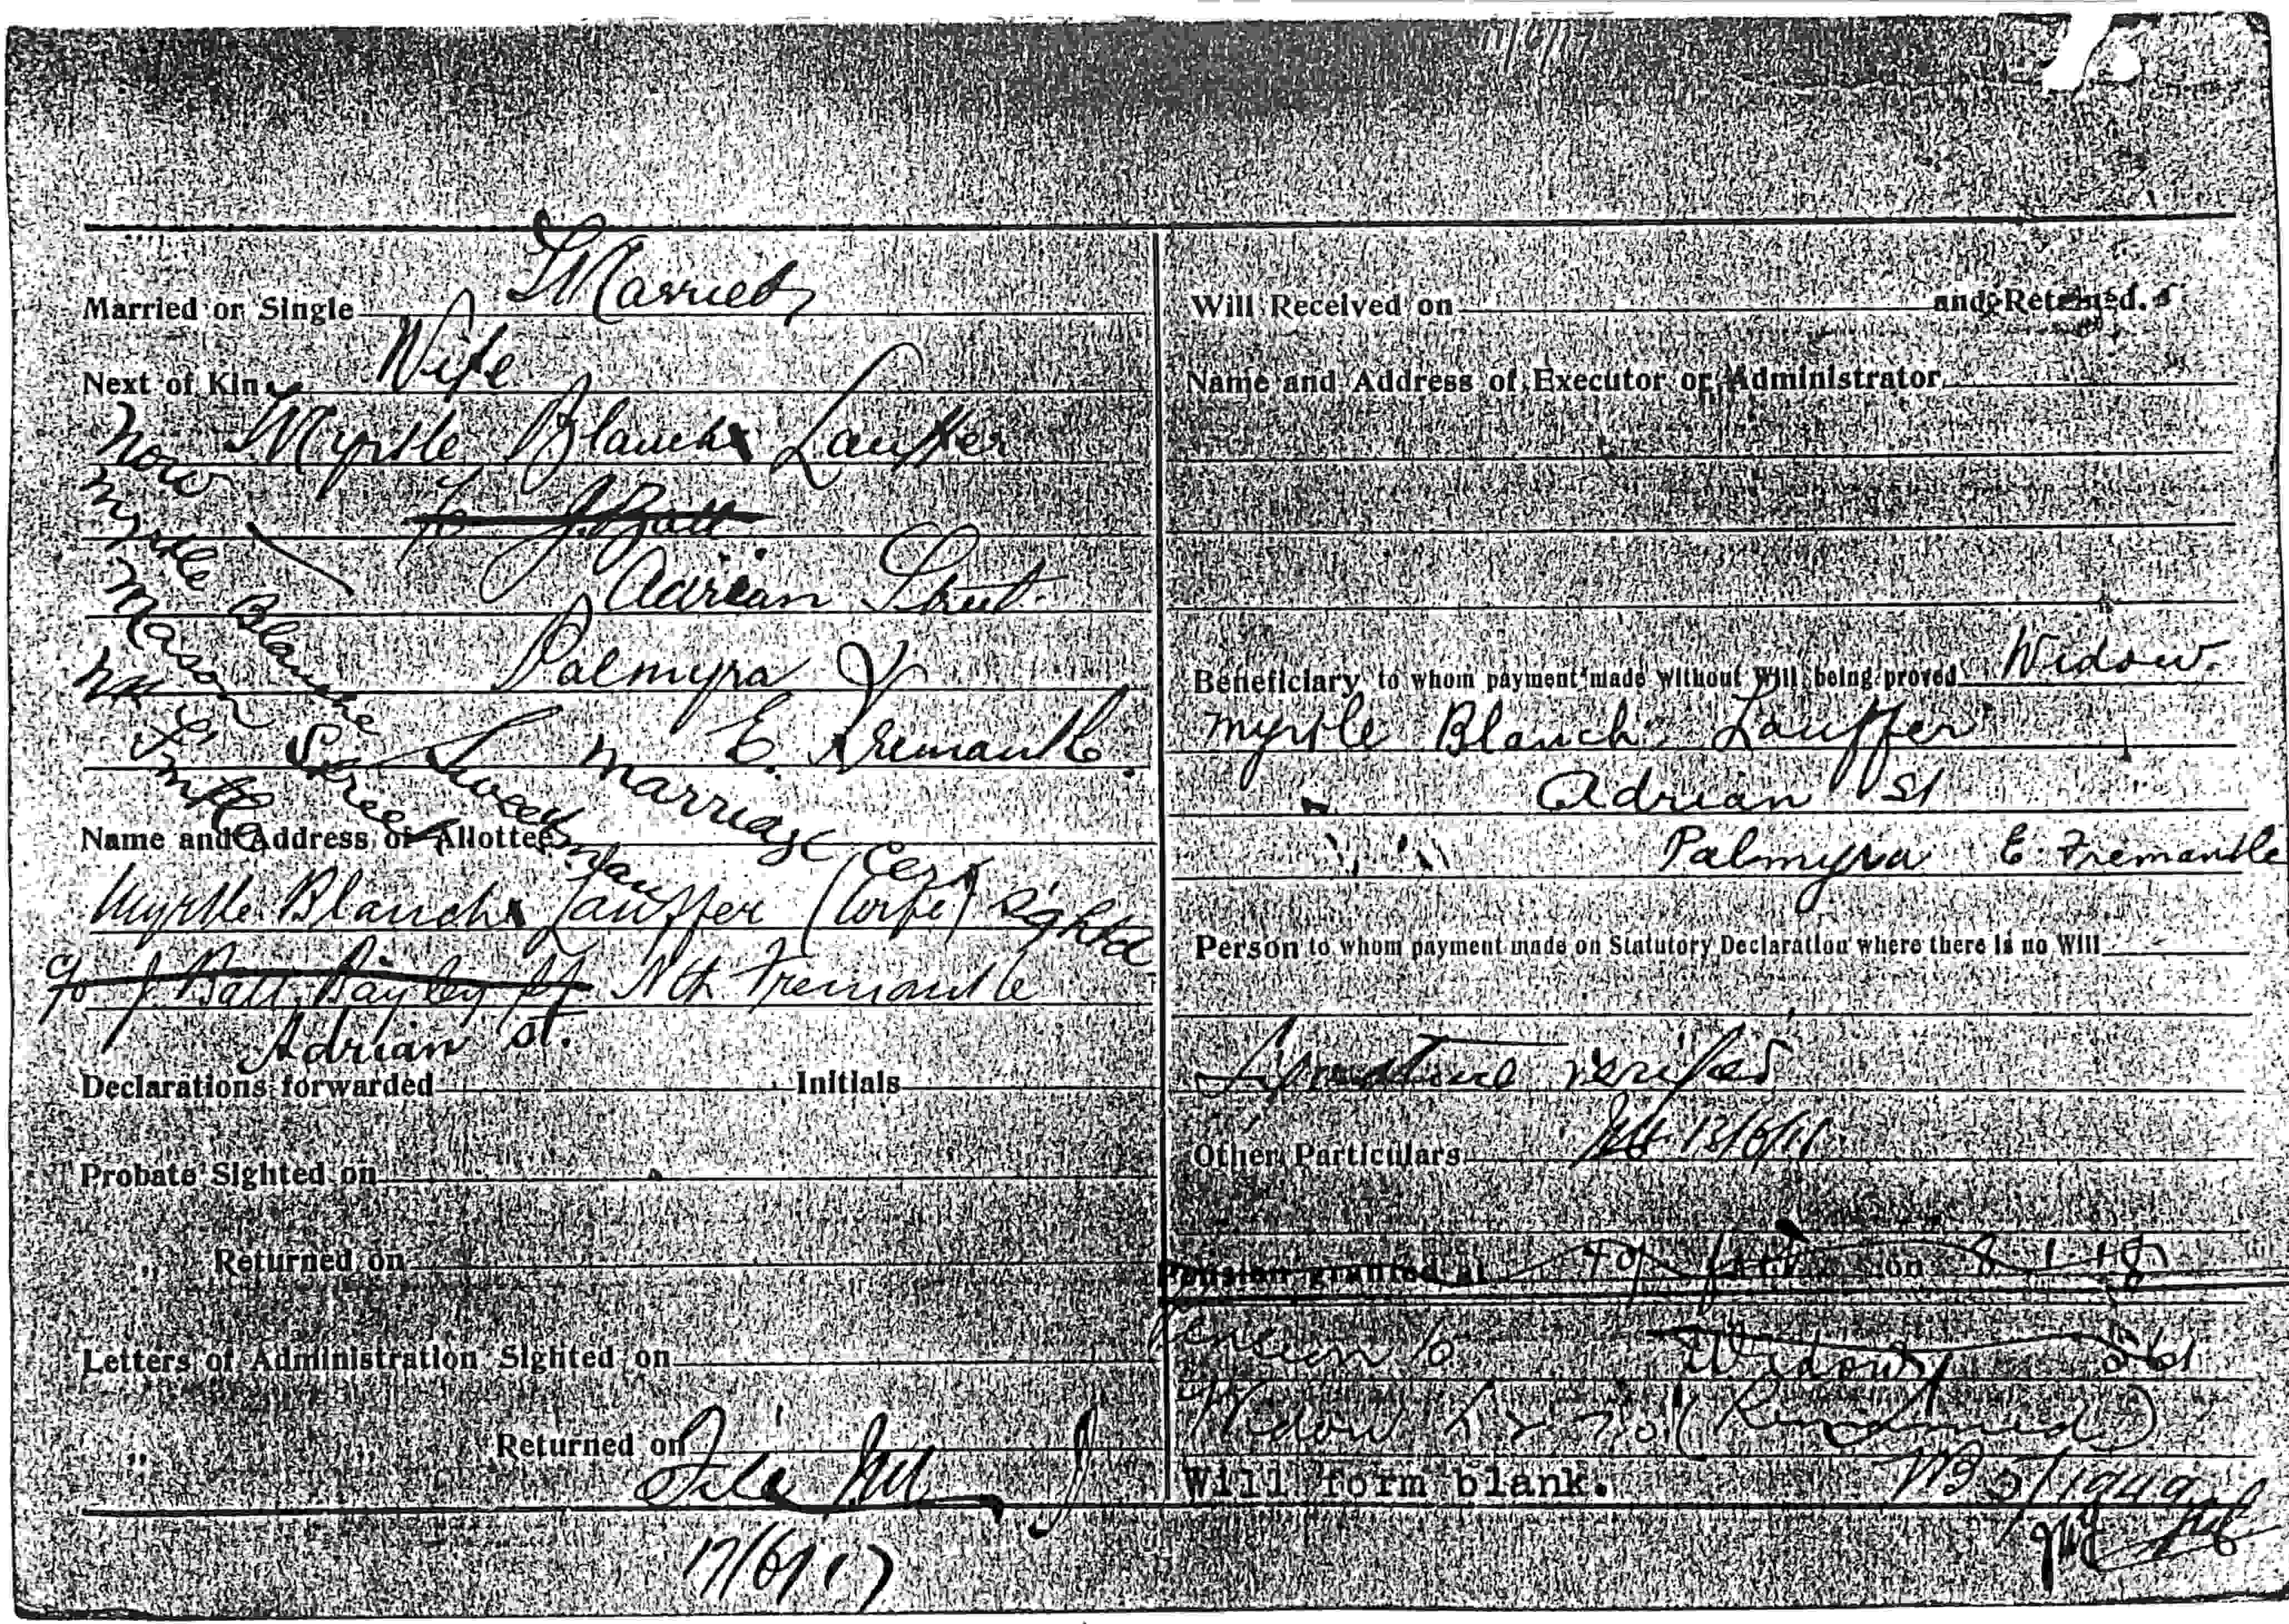 Married or Single Married
Next of Kin Wife
Myrtle Blanch Lauffer
c/o J. Batt
Adrian Street
Palmyra
E. Fremantle.
Now
Myrtle Blanche
Mason
Street
marriage cert sighted
Name and Address of Allottee
Myrtle Blanch Lauffer (wife)
c/o J. Batt, Bayley St Nth Fremantle
Adrian St.
Declarations forwarded Initials
Probate Sighted on
„ Returned on
Letters of Administration Sighted on
„ „ Returned on
File
17/6/17
Will Received on and Retained.
Name and Address of Executor or Administrator
Beneficiary to whom payment made without Will being proved Widow.
Myrtle Blanch Lauffer
Adrian St
Palmyra E. Fremantle
Person to whom payment made on Statutory Declaration where there is no Will
Signature verified
Other Particulars
Pension granted at on 8.1.18
Pension to Widow
Widow
Will form blank.